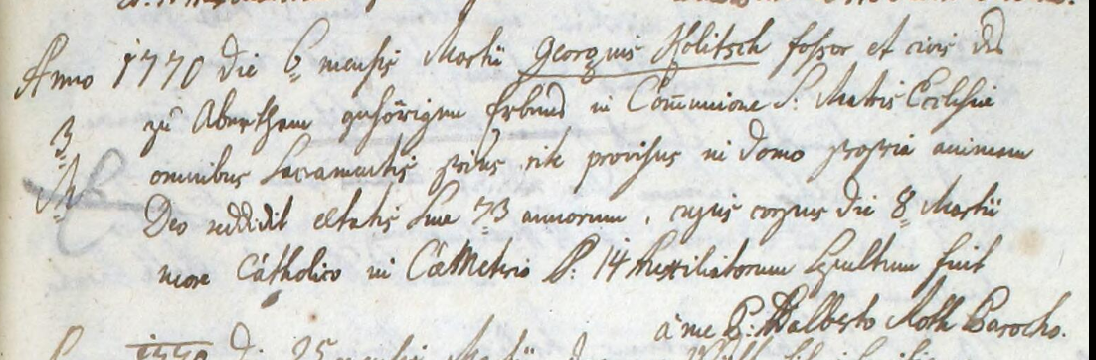 Anno 1770 die 6 mensis Martii Georgius Holitsch fossor et civis des
zu Abertham gehörigen Erbend in Com̄unione S: Matris Ecclesiæ
3
omnibus Sacramentis prius rite provisus in domo propria animam
Deo reddidit ætatis suæ 73 annorum, cujus corpus die 8 Martii
more Catholico in Cœmeterio P: 14 Auxiliatorum sepultum fuit
à me P: Adalberto Roth Parocho.
1770 die 25 mensis Martii